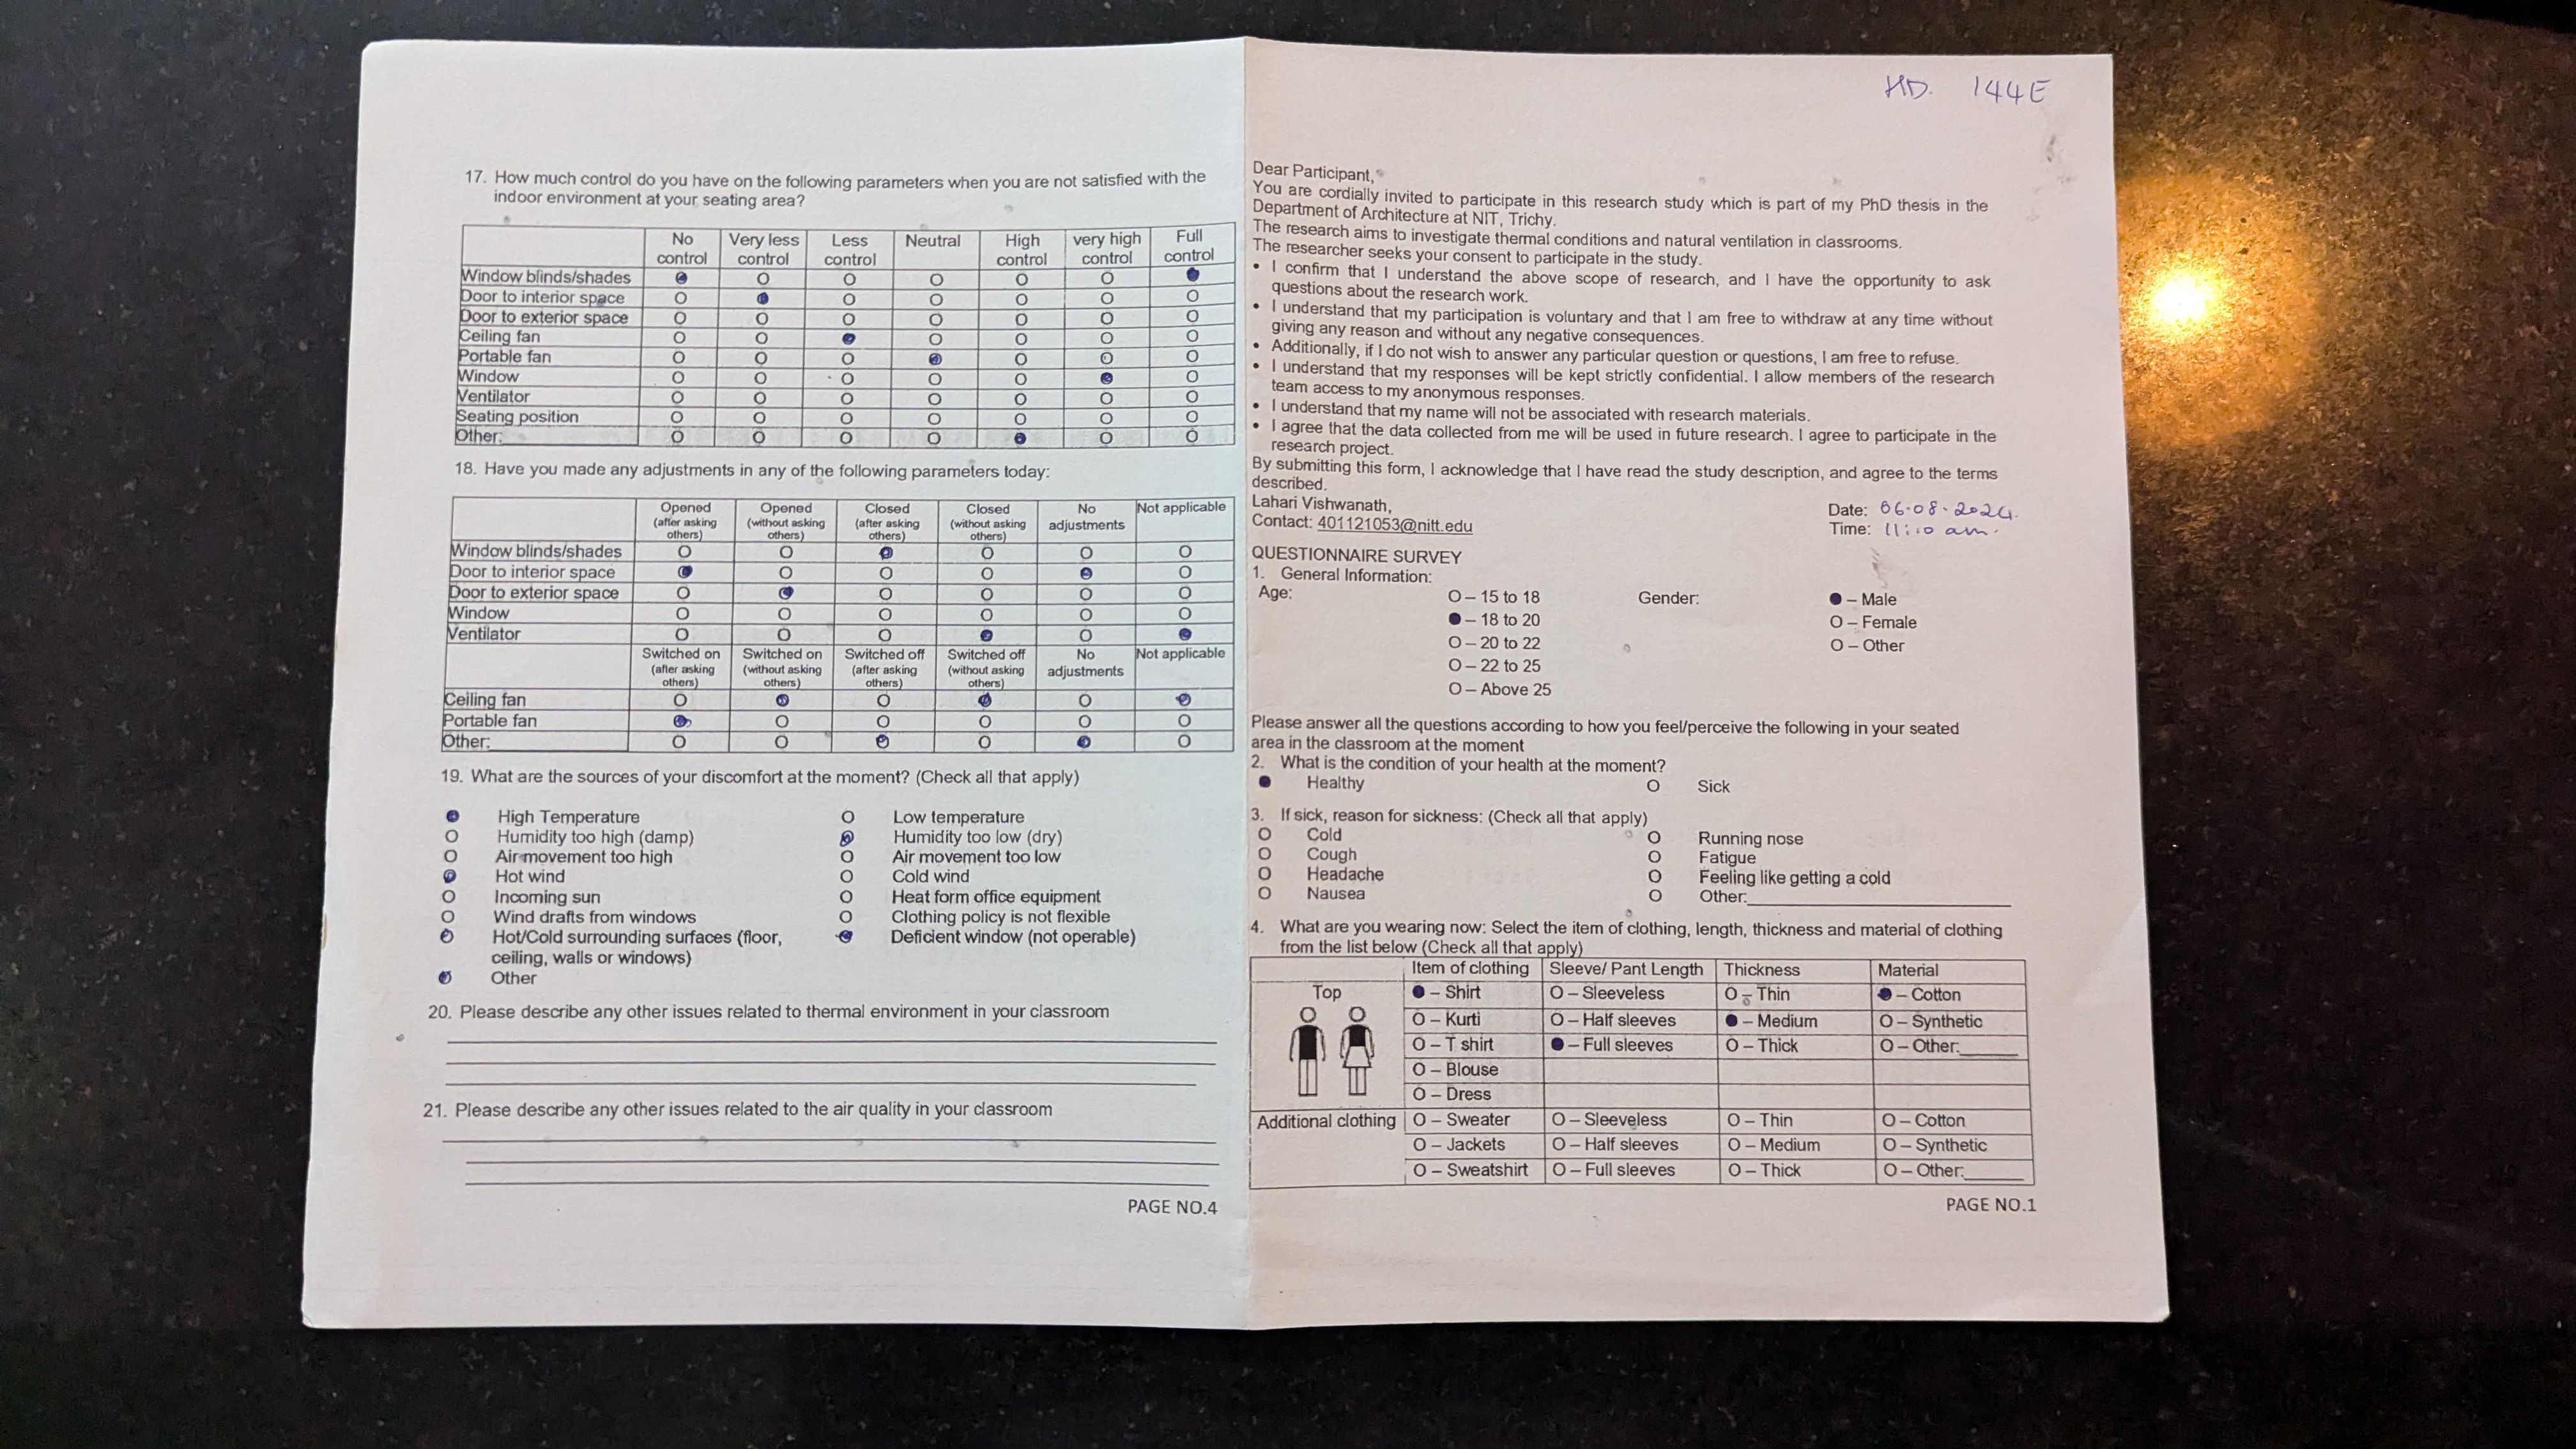 17. How much control do you have on the following parameters when you are not satisfied with the
indoor environment at your seating area?
No control Very less control Less control Neutral High control very high control Full control
Window blinds/shades ● O O O O O ●
Door to interior space O ● O O O O O
Door to exterior space O O O O O O O
Ceiling fan O O ● O O O O
Portable fan O O O ● O O O
Window O O O O O ● O
Ventilator O O O O O O O
Seating position O O O O O O O
Other: O O O O ● O O
18. Have you made any adjustments in any of the following parameters today:
Opened (after asking others) Opened (without asking others) Closed (after asking others) Closed (without asking others) No adjustments Not applicable
Window blinds/shades O O ● O O O
Door to interior space ● O O O ● O
Door to exterior space O ● O O O O
Window O O O O O O
Ventilator O O O ● O ●
Switched on (after asking others) Switched on (without asking others) Switched off (after asking others) Switched off (without asking others) No adjustments Not applicable
Ceiling fan O ● O ● O ●
Portable fan ● O O O O O
Other: O O ● O ● O
19. What are the sources of your discomfort at the moment? (Check all that apply)
● High Temperature O Low temperature
O Humidity too high (damp) ● Humidity too low (dry)
O Air movement too high O Air movement too low
● Hot wind O Cold wind
O Incoming sun O Heat form office equipment
O Wind drafts from windows O Clothing policy is not flexible
● Hot/Cold surrounding surfaces (floor, ● Deficient window (not operable)
ceiling, walls or windows)
● Other
20. Please describe any other issues related to thermal environment in your classroom
21. Please describe any other issues related to the air quality in your classroom
PAGE NO.4
HD. 144E
Dear Participant,
You are cordially invited to participate in this research study which is part of my PhD thesis in the
Department of Architecture at NIT, Trichy.
The research aims to investigate thermal conditions and natural ventilation in classrooms.
The researcher seeks your consent to participate in the study.
• I confirm that I understand the above scope of research, and I have the opportunity to ask
questions about the research work.
• I understand that my participation is voluntary and that I am free to withdraw at any time without
giving any reason and without any negative consequences.
• Additionally, if I do not wish to answer any particular question or questions, I am free to refuse.
• I understand that my responses will be kept strictly confidential. I allow members of the research
team access to my anonymous responses.
• I understand that my name will not be associated with research materials.
• I agree that the data collected from me will be used in future research. I agree to participate in the
research project.
By submitting this form, I acknowledge that I have read the study description, and agree to the terms
described.
Lahari Vishwanath,
Contact: 401121053@nitt.edu
Date: 06-08-2024.
Time: 11:10 am.
QUESTIONNAIRE SURVEY
1. General Information:
Age: O – 15 to 18 Gender: ● – Male
● – 18 to 20 O – Female
O – 20 to 22 O – Other
O – 22 to 25
O – Above 25
Please answer all the questions according to how you feel/perceive the following in your seated
area in the classroom at the moment
2. What is the condition of your health at the moment?
● Healthy O Sick
3. If sick, reason for sickness: (Check all that apply)
O Cold O Running nose
O Cough O Fatigue
O Headache O Feeling like getting a cold
O Nausea O Other:
4. What are you wearing now: Select the item of clothing, length, thickness and material of clothing
from the list below (Check all that apply)
Item of clothing Sleeve/ Pant Length Thickness Material
Top ● – Shirt O – Sleeveless O – Thin ● – Cotton
O – Kurti O – Half sleeves ● – Medium O – Synthetic
O – T shirt ● – Full sleeves O – Thick O – Other:
O – Blouse
O – Dress
Additional clothing O – Sweater O – Sleeveless O – Thin O – Cotton
O – Jackets O – Half sleeves O – Medium O – Synthetic
O – Sweatshirt O – Full sleeves O – Thick O – Other:
PAGE NO.1